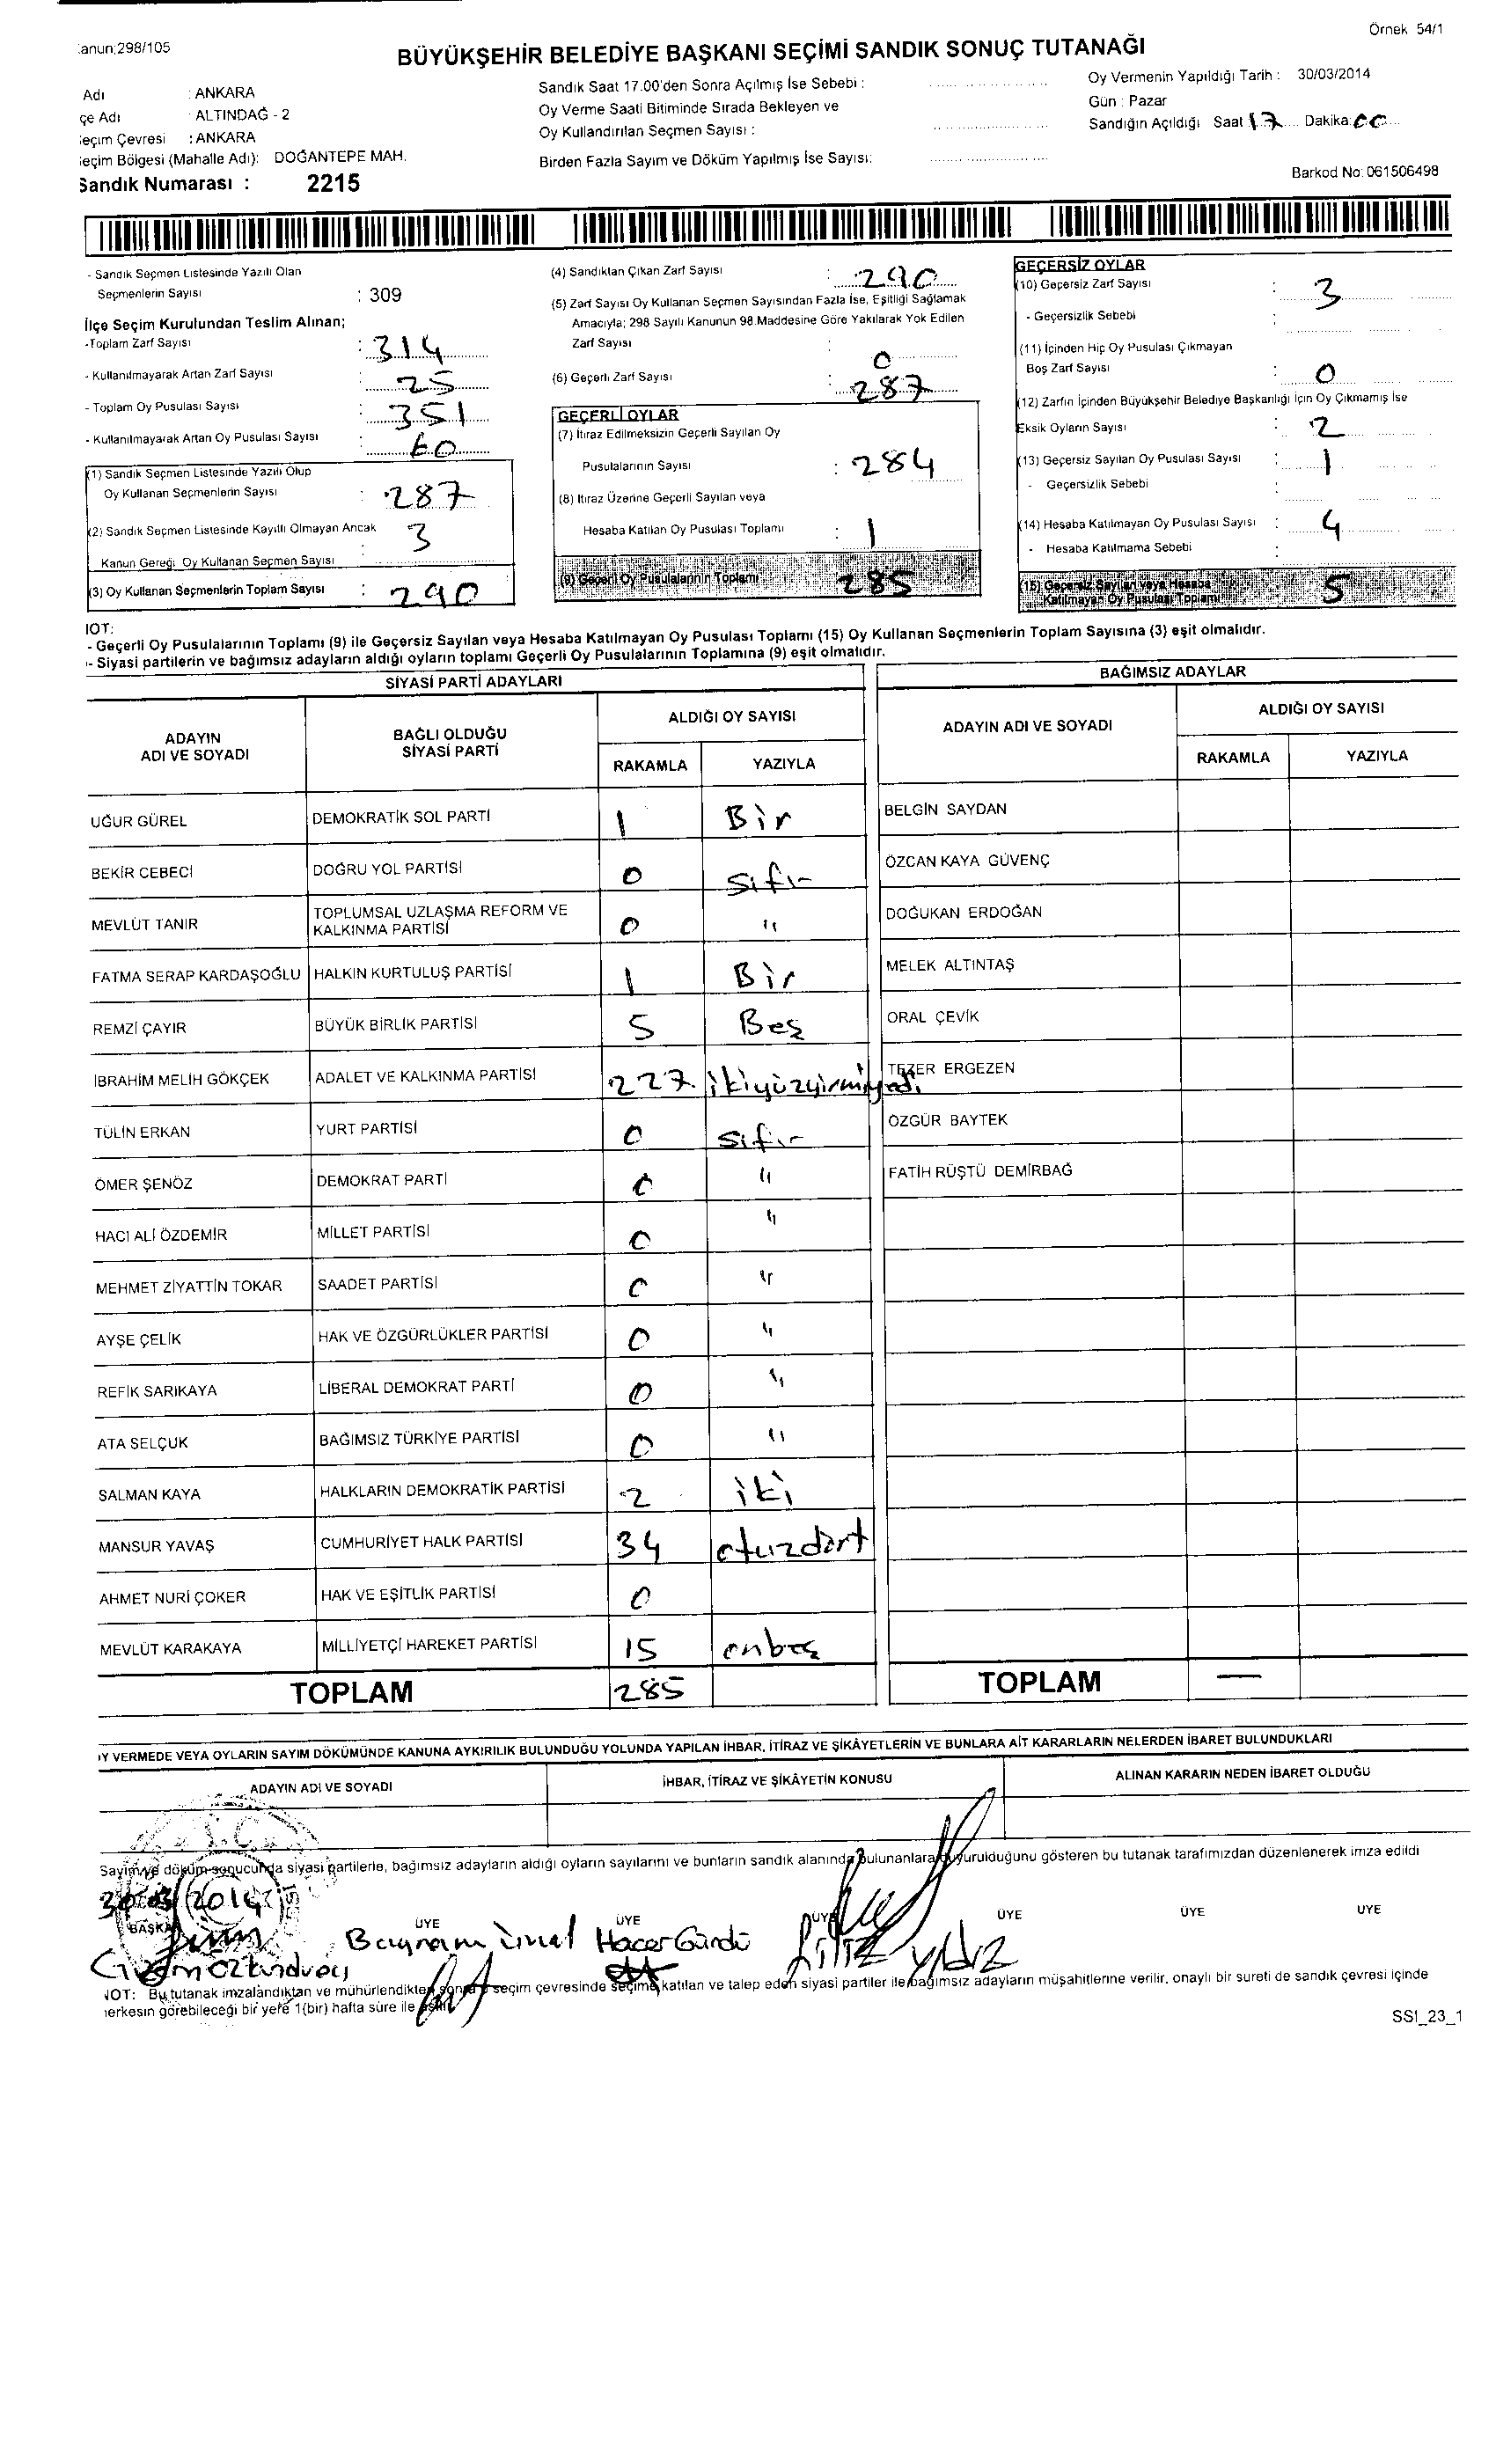 :anun;298/105
Örnek 54/1
BÜYÜKŞEHİR BELEDİYE BAŞKANI SEÇİMİ SANDIK SONUÇ TUTANAĞI
Adı : ANKARA
çe Adı ALTINDAĞ - 2
eçim Çevresi : ANKARA
eçim Bölgesi (Mahalle Adı): DOĞANTEPE MAH.
Sandık Numarası : 2215
Sandık Saat 17.00'den Sonra Açılmış İse Sebebi :
Oy Verme Saati Bitiminde Sırada Bekleyen ve
Oy Kullandırılan Seçmen Sayısı :
Birden Fazla Sayım ve Döküm Yapılmış İse Sayısı:
Oy Vermenin Yapıldığı Tarih : 30/03/2014
Gün : Pazar
Sandığın Açıldığı Saat 17 Dakika: 00
Barkod No: 061506498
- Sandık Seçmen Listesinde Yazılı Olan
Seçmenlerin Sayısı : 309
İlçe Seçim Kurulundan Teslim Alınan;
-Toplam Zarf Sayısı : 314
- Kullanılmayarak Artan Zarf Sayısı : 25
- Toplam Oy Pusulası Sayısı : 351
- Kullanılmayarak Artan Oy Pusulası Sayısı : 60
(1) Sandık Seçmen Listesinde Yazılı Olup
Oy Kullanan Seçmenlerin Sayısı : 287
(2) Sandık Seçmen Listesinde Kayıtlı Olmayan Ancak
Kanun Gereği Oy Kullanan Seçmen Sayısı : 3
(3) Oy Kullanan Seçmenlerin Toplam Sayısı : 290
(4) Sandıktan Çıkan Zarf Sayısı : 290
(5) Zarf Sayısı Oy Kullanan Seçmen Sayısından Fazla İse, Eşitliği Sağlamak
Amacıyla; 298 Sayılı Kanunun 98.Maddesine Göre Yakılarak Yok Edilen
Zarf Sayısı : 0
(6) Geçerli Zarf Sayısı : 287
GEÇERLİ OYLAR
(7) İtiraz Edilmeksizin Geçerli Sayılan Oy
Pusulalarının Sayısı : 284
(8) İtiraz Üzerine Geçerli Sayılan veya
Hesaba Katılan Oy Pusulası Toplamı : 1
(9) Geçerli Oy Pusulalarının Toplamı 285
GEÇERSİZ OYLAR
(10) Geçersiz Zarf Sayısı : 3
- Geçersizlik Sebebi :
(11) İçinden Hiç Oy Pusulası Çıkmayan
Boş Zarf Sayısı : 0
(12) Zarfın İçinden Büyükşehir Belediye Başkanlığı İçin Oy Çıkmamış İse
Eksik Oyların Sayısı : 2
(13) Geçersiz Sayılan Oy Pusulası Sayısı : 1
- Geçersizlik Sebebi :
(14) Hesaba Katılmayan Oy Pusulası Sayısı : 4
- Hesaba Katılmama Sebebi :
(15) Geçersiz Sayılan veya Hesaba
Katılmayan Oy Pusulası Toplamı 5
IOT:
- Geçerli Oy Pusulalarının Toplamı (9) ile Geçersiz Sayılan veya Hesaba Katılmayan Oy Pusulası Toplamı (15) Oy Kullanan Seçmenlerin Toplam Sayısına (3) eşit olmalıdır.
- Siyasi partilerin ve bağımsız adayların aldığı oyların toplamı Geçerli Oy Pusulalarının Toplamına (9) eşit olmalıdır.
SİYASİ PARTİ ADAYLARI
ADAYIN ADI VE SOYADI BAĞLI OLDUĞU SİYASİ PARTİ ALDIĞI OY SAYISI
RAKAMLA YAZIYLA
UĞUR GÜREL DEMOKRATİK SOL PARTİ 1 Bir
BEKİR CEBECİ DOĞRU YOL PARTİSİ 0 Sıfır
MEVLÜT TANIR TOPLUMSAL UZLAŞMA REFORM VE KALKINMA PARTİSİ 0 "
FATMA SERAP KARDAŞOĞLU HALKIN KURTULUŞ PARTİSİ 1 Bir
REMZİ ÇAYIR BÜYÜK BİRLİK PARTİSİ 5 Beş
İBRAHİM MELİH GÖKÇEK ADALET VE KALKINMA PARTİSİ 227 ikiyüzyirmiyedi
TÜLİN ERKAN YURT PARTİSİ 0 Sıfır
ÖMER ŞENÖZ DEMOKRAT PARTİ 0 "
HACI ALİ ÖZDEMİR MİLLET PARTİSİ 0 "
MEHMET ZİYATTİN TOKAR SAADET PARTİSİ 0 "
AYŞE ÇELİK HAK VE ÖZGÜRLÜKLER PARTİSİ 0 "
REFİK SARIKAYA LİBERAL DEMOKRAT PARTİ 0 "
ATA SELÇUK BAĞIMSIZ TÜRKİYE PARTİSİ 0 "
SALMAN KAYA HALKLARIN DEMOKRATİK PARTİSİ 2 iki
MANSUR YAVAŞ CUMHURİYET HALK PARTİSİ 34 otuzdört
AHMET NURİ ÇOKER HAK VE EŞİTLİK PARTİSİ 0
MEVLÜT KARAKAYA MİLLİYETÇİ HAREKET PARTİSİ 15 onbeş
TOPLAM 285
BAĞIMSIZ ADAYLAR
ADAYIN ADI VE SOYADI ALDIĞI OY SAYISI
RAKAMLA YAZIYLA
BELGİN SAYDAN
ÖZCAN KAYA GÜVENÇ
DOĞUKAN ERDOĞAN
MELEK ALTINTAŞ
ORAL ÇEVİK
TEZER ERGEZEN
ÖZGÜR BAYTEK
FATİH RÜŞTÜ DEMİRBAĞ
TOPLAM —
IY VERMEDE VEYA OYLARIN SAYIM DÖKÜMÜNDE KANUNA AYKIRILIK BULUNDUĞU YOLUNDA YAPILAN İHBAR, İTİRAZ VE ŞİKÂYETLERİN VE BUNLARA AİT KARARLARIN NELERDEN İBARET BULUNDUKLARI
ADAYIN ADI VE SOYADI İHBAR, İTİRAZ VE ŞİKÂYETİN KONUSU ALINAN KARARIN NEDEN İBARET OLDUĞU
Sayım ve döküm sonucunda siyasi partilerle, bağımsız adayların aldığı oyların sayılarını ve bunların sandık alanında bulunanlara duyurulduğunu gösteren bu tutanak tarafımızdan düzenlenerek imza edildi
30/03/2014
BAŞKAN ÜYE ÜYE ÜYE ÜYE ÜYE ÜYE
Bayram Ünal Hacer Gündü Filiz Yıldız
IOT: Bu tutanak imzalandıktan ve mühürlendikten sonra seçim çevresinde seçime katılan ve talep eden siyasi partiler ile bağımsız adayların müşahitlerine verilir, onaylı bir sureti de sandık çevresi içinde
ıerkesin görebileceği bir yere 1(bir) hafta süre ile asılır
SSI_23_1